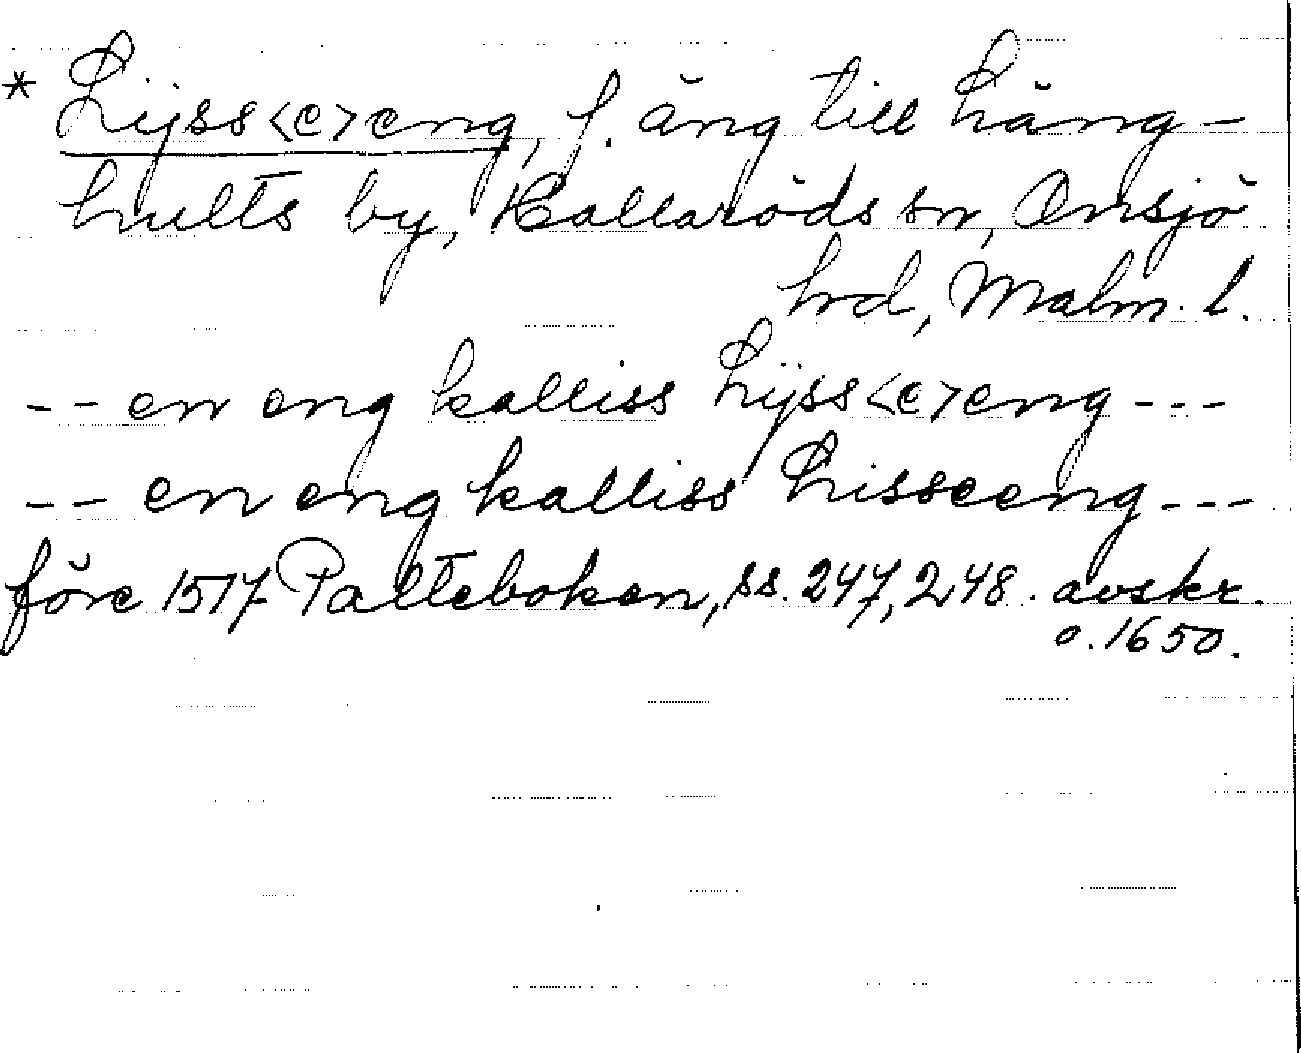 * Lijss<e>eng, f. äng till Läng-
hults by, Hallaröds sn, Onsjö
hrd, Malm. l.
-- en eng kalliss Lijss<e>eng ---
-- en eng kalliss Lisseeng ---
före 1517 Palteboken, ss. 247, 248. avskr.
o. 1650.